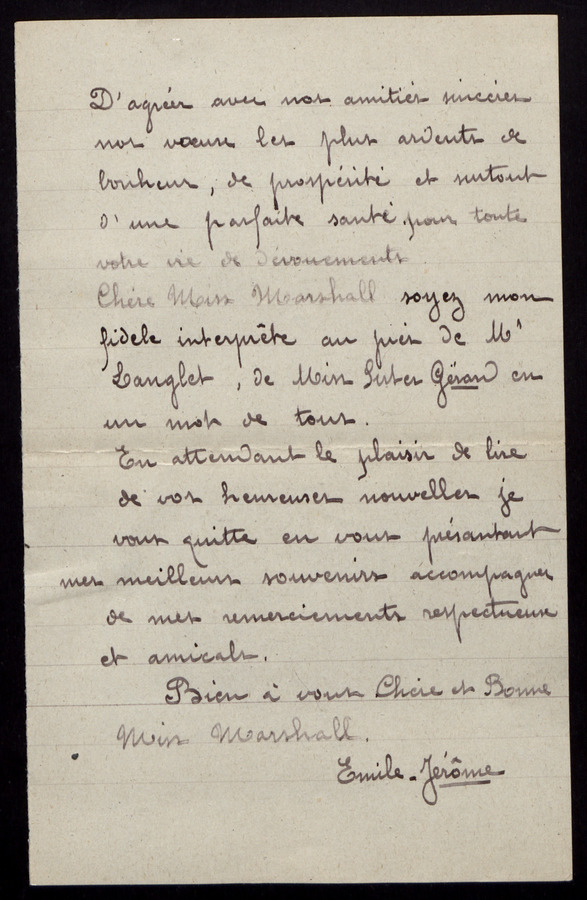 D'agréér avec nos amitiés sincères
nos voeuse les plus ardents de
bonheur, de prospérité et surtout
d'une parfaite santé, pour toute
votre vie de dévouements
Chère Miss Marshall soyez mon
fidele interprête au près de Mr
Langlet, de Miss Suter Gérard en
un mot de tous.
En attendant le plaisir de lire
de vos heureuses nouvelles je
vous quitte en vous présantant
mes meilleurs souvenirs accompagnes
de mes remerciements respectueuse
et amicals.
Bien à vous Chère et Bonne
Miss Marshall.
Emile-Jérôme